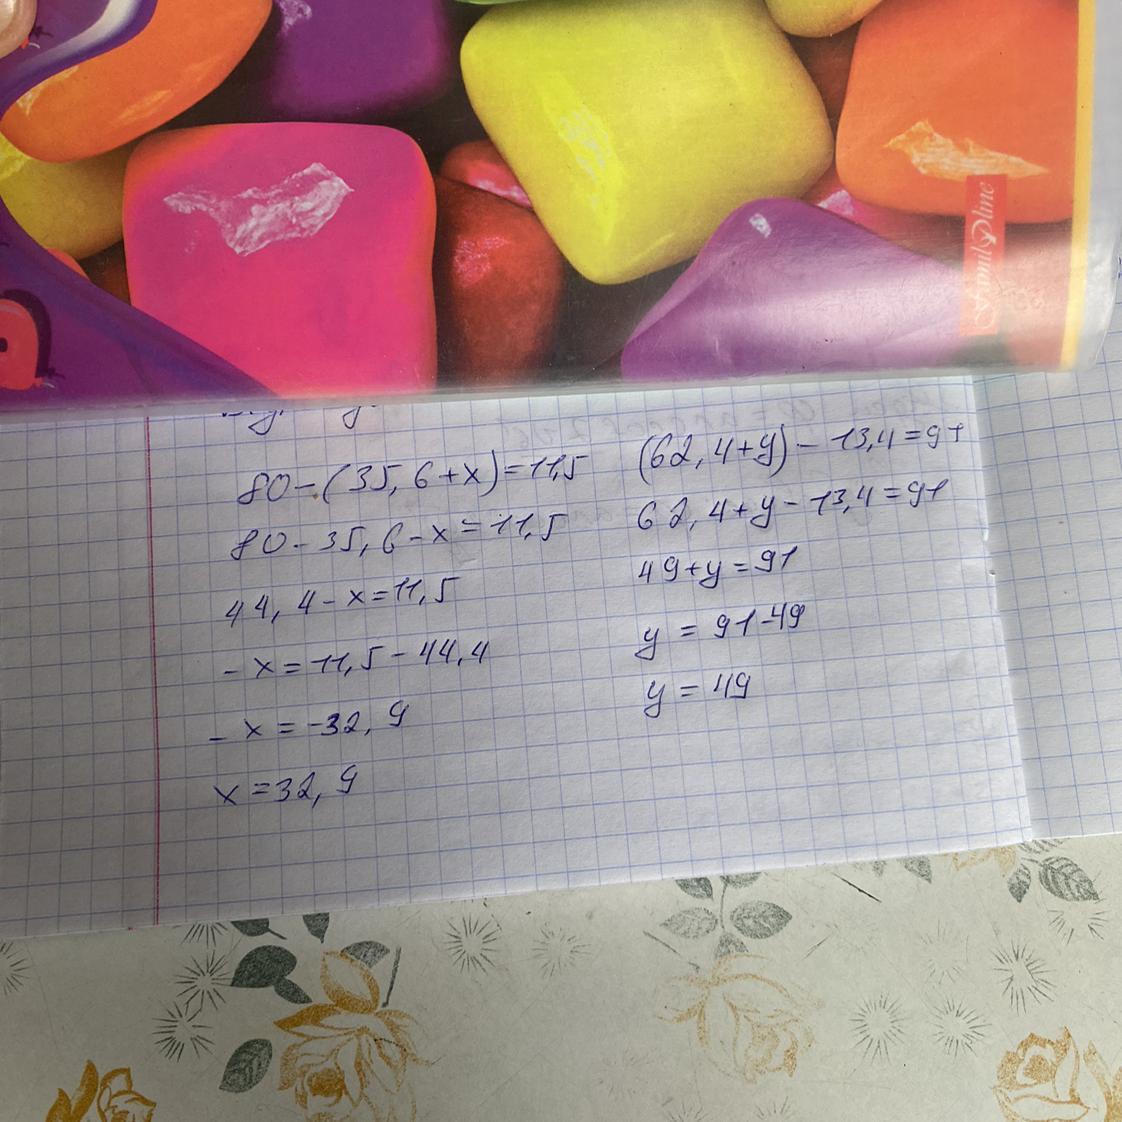 FamilyLine
80-(35,6+x)=11,5
80-35,6-x=11,5
44,4-x=11,5
-x=11,5-44,4
-x=-32,9
x=32,9
(62,4+y)-13,4=91
62,4+y-13,4=91
49+y=91
y=91-49
y=49